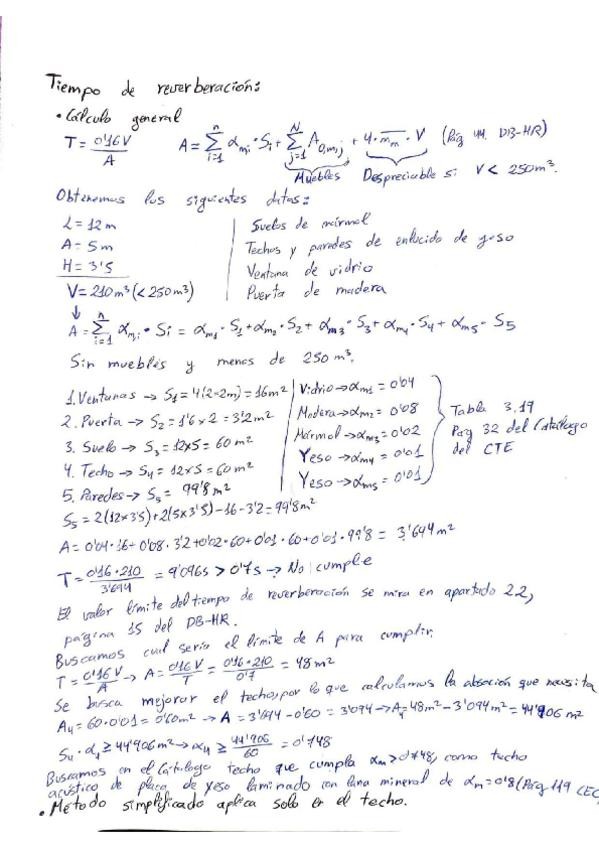 Tiempo de reverberación:
• Cálculo general
T = 0'16V / A   A = ∑ⁿᵢ₌₁ αmᵢ · Sᵢ + ∑ᴺⱼ₌₁ A₀,m,j + 4 · m̄m · V (Pág 44. DB-HR)
Muebles Despreciable si V < 250m³.
Obtenemos los siguientes datos:
L = 12m | Suelos de mármol
A = 5m | Techos y paredes de enlucido de yeso
H = 3'5 | Ventana de vidrio
V = 210m³ (<250m³) | Puerta de madera
↓
A = ∑ⁿᵢ₌₁ αmᵢ · Si = αm₁ · S₁ + αm₂ · S₂ + αm₃ · S₃ + αm₄ · S₄ + αm₅ · S₅
Sin muebles y menos de 250m³.
1. Ventanas → S₁ = 4(2·2m) = 16m² | Vidrio → αm₁ = 0'04
2. Puerta → S₂ = 1'6 × 2 = 3'2m² | Madera → αm₂ = 0'08
3. Suelo → S₃ = 12×5 = 60m² | Mármol → αm₃ = 0'02
4. Techo → S₄ = 12×5 = 60m² | Yeso → αm₄ = 0'01
5. Paredes → S₅ = 99'8m² | Yeso → αm₅ = 0'01
Tabla 3.19
Pág 32 del Catálogo
del CTE
S₅ = 2(12×3'5) + 2(5×3'5) - 16 - 3'2 = 99'8m²
A = 0'04·16 + 0'08·3'2 + 0'02·60 + 0'01·60 + 0'01·99'8 = 3'694m²
T = 0'16·210 / 3'694 = 9'096s > 0'7s → No cumple
El valor límite del tiempo de reverberación se mira en apartado 2.2,
página 15 del DB-HR.
Buscamos cual sería el límite de A para cumplir.
T = 0'16V / A → A = 0'16V / T = 0'16·210 / 0'7 = 48m²
Se busca mejorar el techo, por lo que calculamos la absoción que necesita
A₄ = 60·0'01 = 0'60m² → A = 3'694 - 0'60 = 3'094 → A₄ = 48m² - 3'094m² = 44'906m²
S₄ · α₄ ≥ 44'906m² → α₄ ≥ 44'906 / 60 = 0'748
Buscamos en el Catálogo techo que cumpla αm > 0'748, como techo
acústico de placa de yeso laminado con lana mineral de αm = 0'8 (Pág 119 CEC
• Método simplificado aplica solo en el techo.